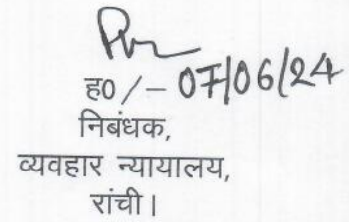 ह० /- 07/06/24
निबंधक,
व्यवहार न्यायालय,
रांची।